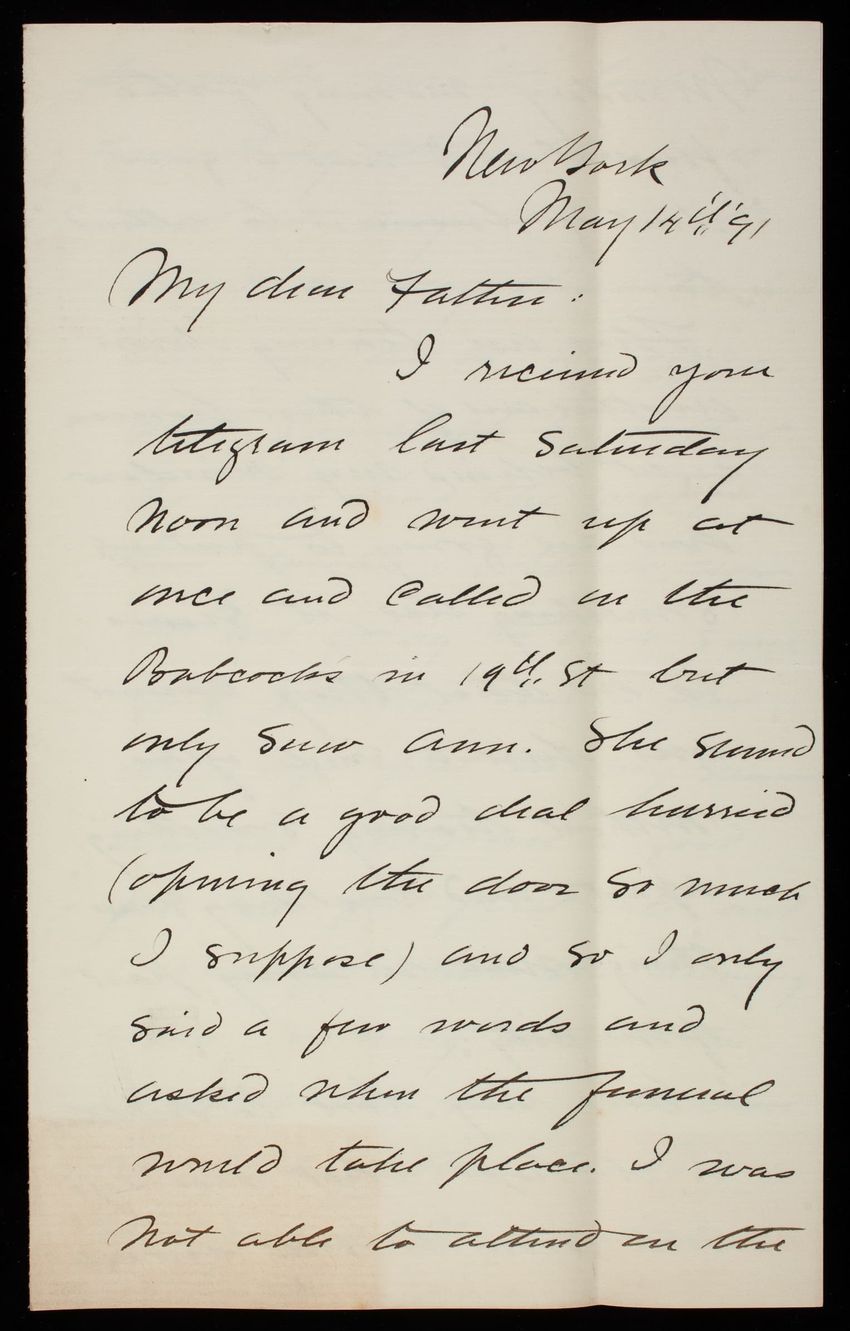 New York
May 14th 91
My dear Father:
I received your
telegram last Saturday
noon and went up at
once and called on the
Babcocks in 19th St but
only saw Ann. She seemed
to be a good deal hurried
(opening the door so much
I suppose) and so I only
said a few words and
asked when the funeral
would take place. I was
not able to attend on the